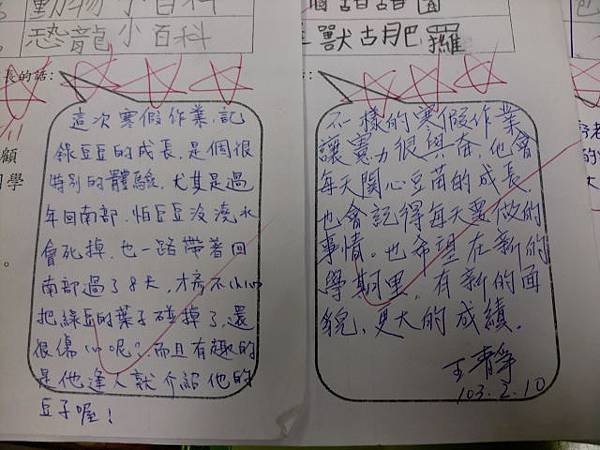 動物小百科
恐龍小百科
長的話:
這次寒假作業,記
錄豆豆的成長,是個很
特別的體驗,尤其是過
年回南部,怕豆豆沒澆水
會死掉,也一路帶著回
南部過了8天,才房不小心
把綠豆的葉子碰掉了,還
很傷心呢?而且有趣的
是他逢人就介紹他的
豆子喔!
顧
同學
獸 肥 羅
不一樣的寒假作業
讓憲力很興奮,他會
每天關心豆苗的成長,
也會記得每天要做的
事情。也希望在新的
學期里,有新的面
貌,更大的成績。
王靜
103.2.10